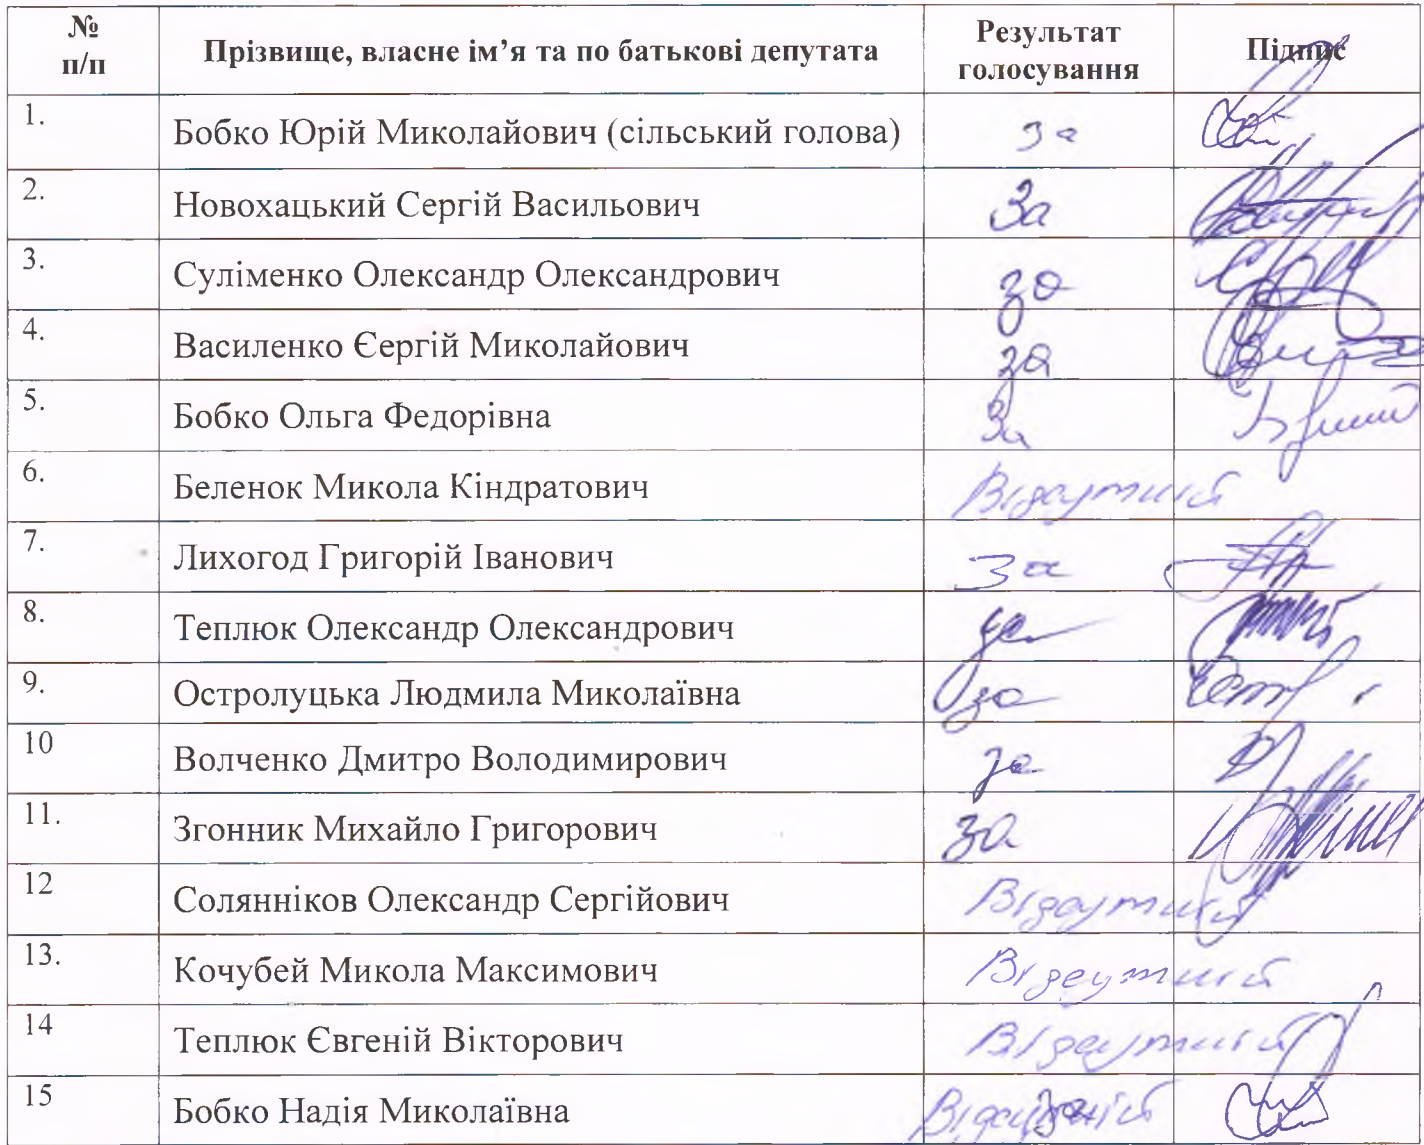 № п/п Прізвище, власне ім’я та по батькові депутата Результат голосування Підпис
1. Бобко Юрій Миколайович (сільський голова) за
2. Новохацький Сергій Васильович За
3. Суліменко Олександр Олександрович за
4. Василенко Єергій Миколайович за
5. Бобко Ольга Федорівна За
6. Беленок Микола Кіндратович Відсутній
7. Лихогод Григорій Іванович За
8. Теплюк Олександр Олександрович за
9. Остролуцька Людмила Миколаївна за
10 Волченко Дмитро Володимирович за
11. Згонник Михайло Григорович за
12 Солянніков Олександр Сергійович Відсутній
13. Кочубей Микола Максимович Відсутній
14 Теплюк Євгеній Вікторович Відсутній
15 Бобко Надія Миколаївна Відсутній за